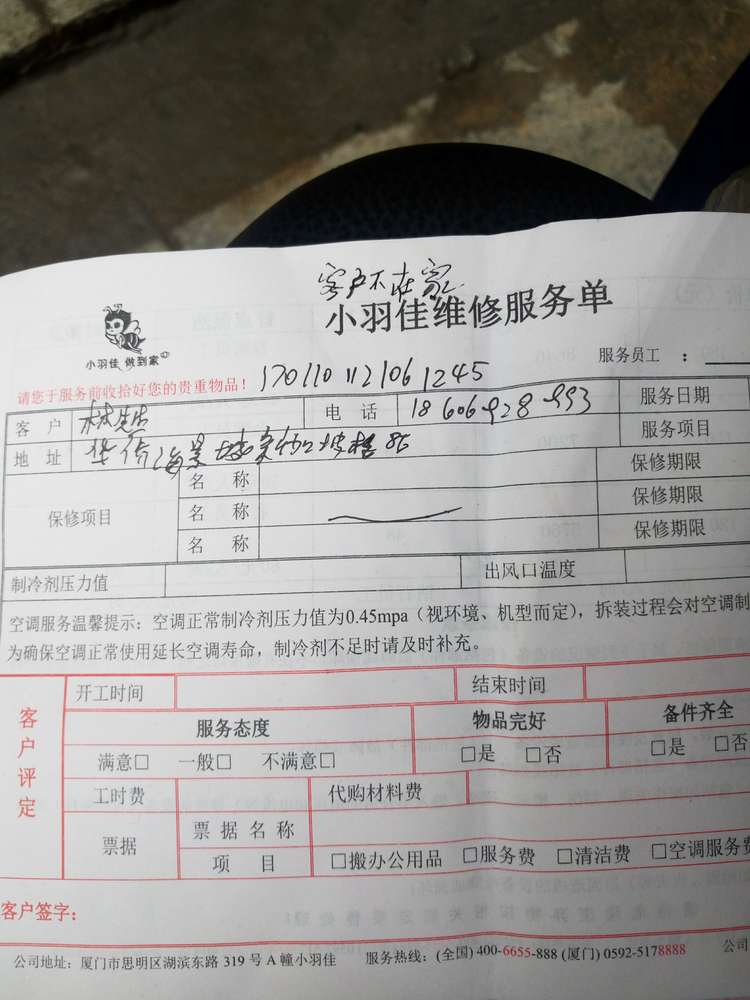 客户不在家
小羽佳维修服务单
小羽佳 做到家
服务员工 ：
请您于服务前收拾好您的贵重物品！ 1701101121061245
客 户 林先生 电 话 18606928993 服务日期
地 址 华侨海景城 85 服务项目
保修项目 名 称 保修期限
名 称 保修期限
名 称 保修期限
制冷剂压力值 出风口温度
空调服务温馨提示：空调正常制冷剂压力值为0.45mpa（视环境、机型而定），拆装过程会对空调制
为确保空调正常使用延长空调寿命，制冷剂不足时请及时补充。
客户评定 开工时间 结束时间
服务态度 物品完好 备件齐全
满意□ 一般□ 不满意□ □是 □否 □是 □否
工时费 代购材料费
票据 票 据 名 称
项 目 □搬办公用品 □服务费 □清洁费 □空调服务费
客户签字：
公司地址：厦门市思明区湖滨东路 319 号 A 幢小羽佳 服务热线：(全国) 400-6655-888 (厦门) 0592-5178888 公司